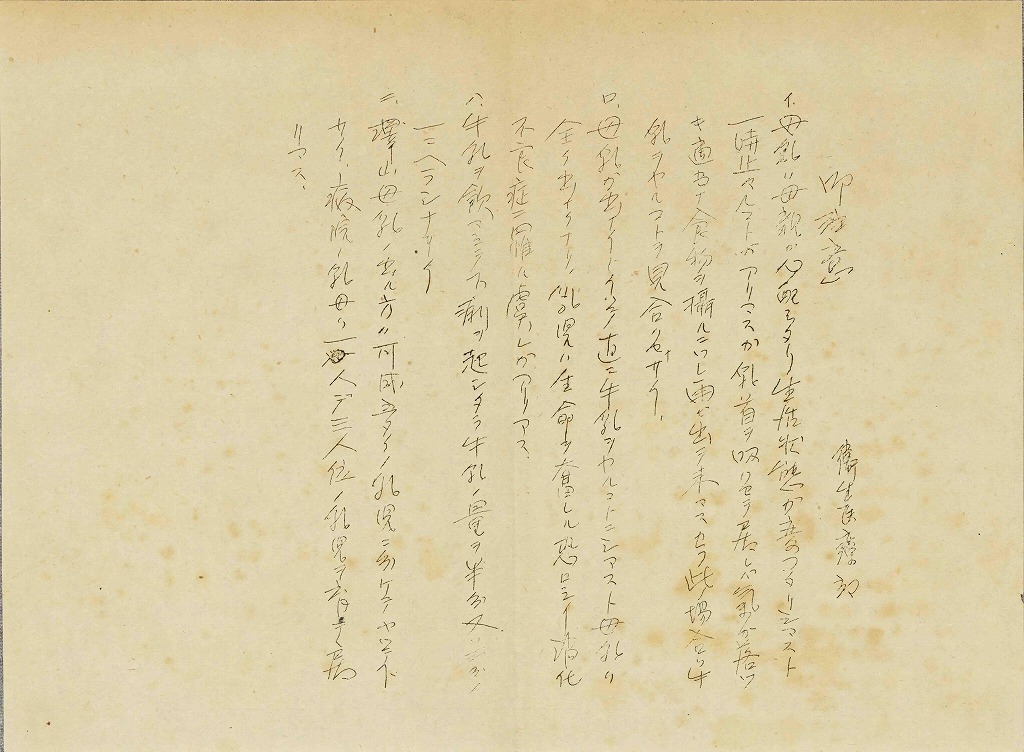 御注意
衛生医療部
イ、母乳ハ母親ガ心配シタリ生活状態ガ変ツタリシマスト
一時止マルコトガアリマスガ乳首ヲ吸ハセテ居レバ気ガ落ツ
キ適当ナ食物ヲ攝ルニツレ再ビ出テ来マスカラ此場合ハ牛
乳ヲヤルコトヲ見合ハセナサイ、
ロ、母乳ガ出ナイトイツテ直ニ牛乳ヲヤルコトニシマスト母乳ハ
全ク出ナクナリ、乳児ハ生命ヲ奪レル恐ロシイ消化
不良症ニ罹ル虞レガアリマス、
ハ、牛乳ヲ飲マシテ下痢ヲ起シタラ牛乳ノ量ヲ半分又ハ三分ノ
一ニヘラシナサイ
ニ、澤山母乳ノ出ル方ハ可成ヨタノ乳児ニ分ケテヤツテ下
サイ、病院ノ乳母ハ一人デ三人位ノ乳児ヲ育テ居
リマス、